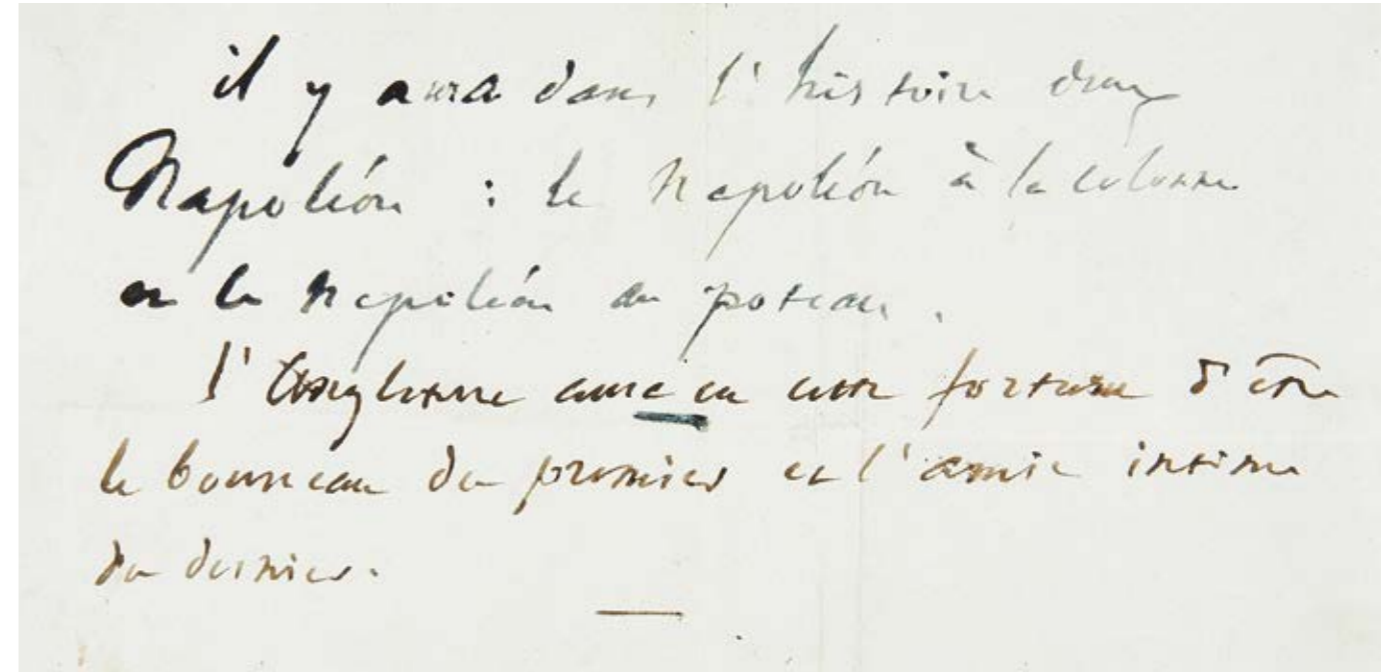 il y aura dans l'histoire deux
Napoléon : le Napoléon à la colonne
et le Napoléon au poteau.
l'Angleterre aura eu cette fortune d'être
le bourreau du premier et l'amie intime
du dernier.